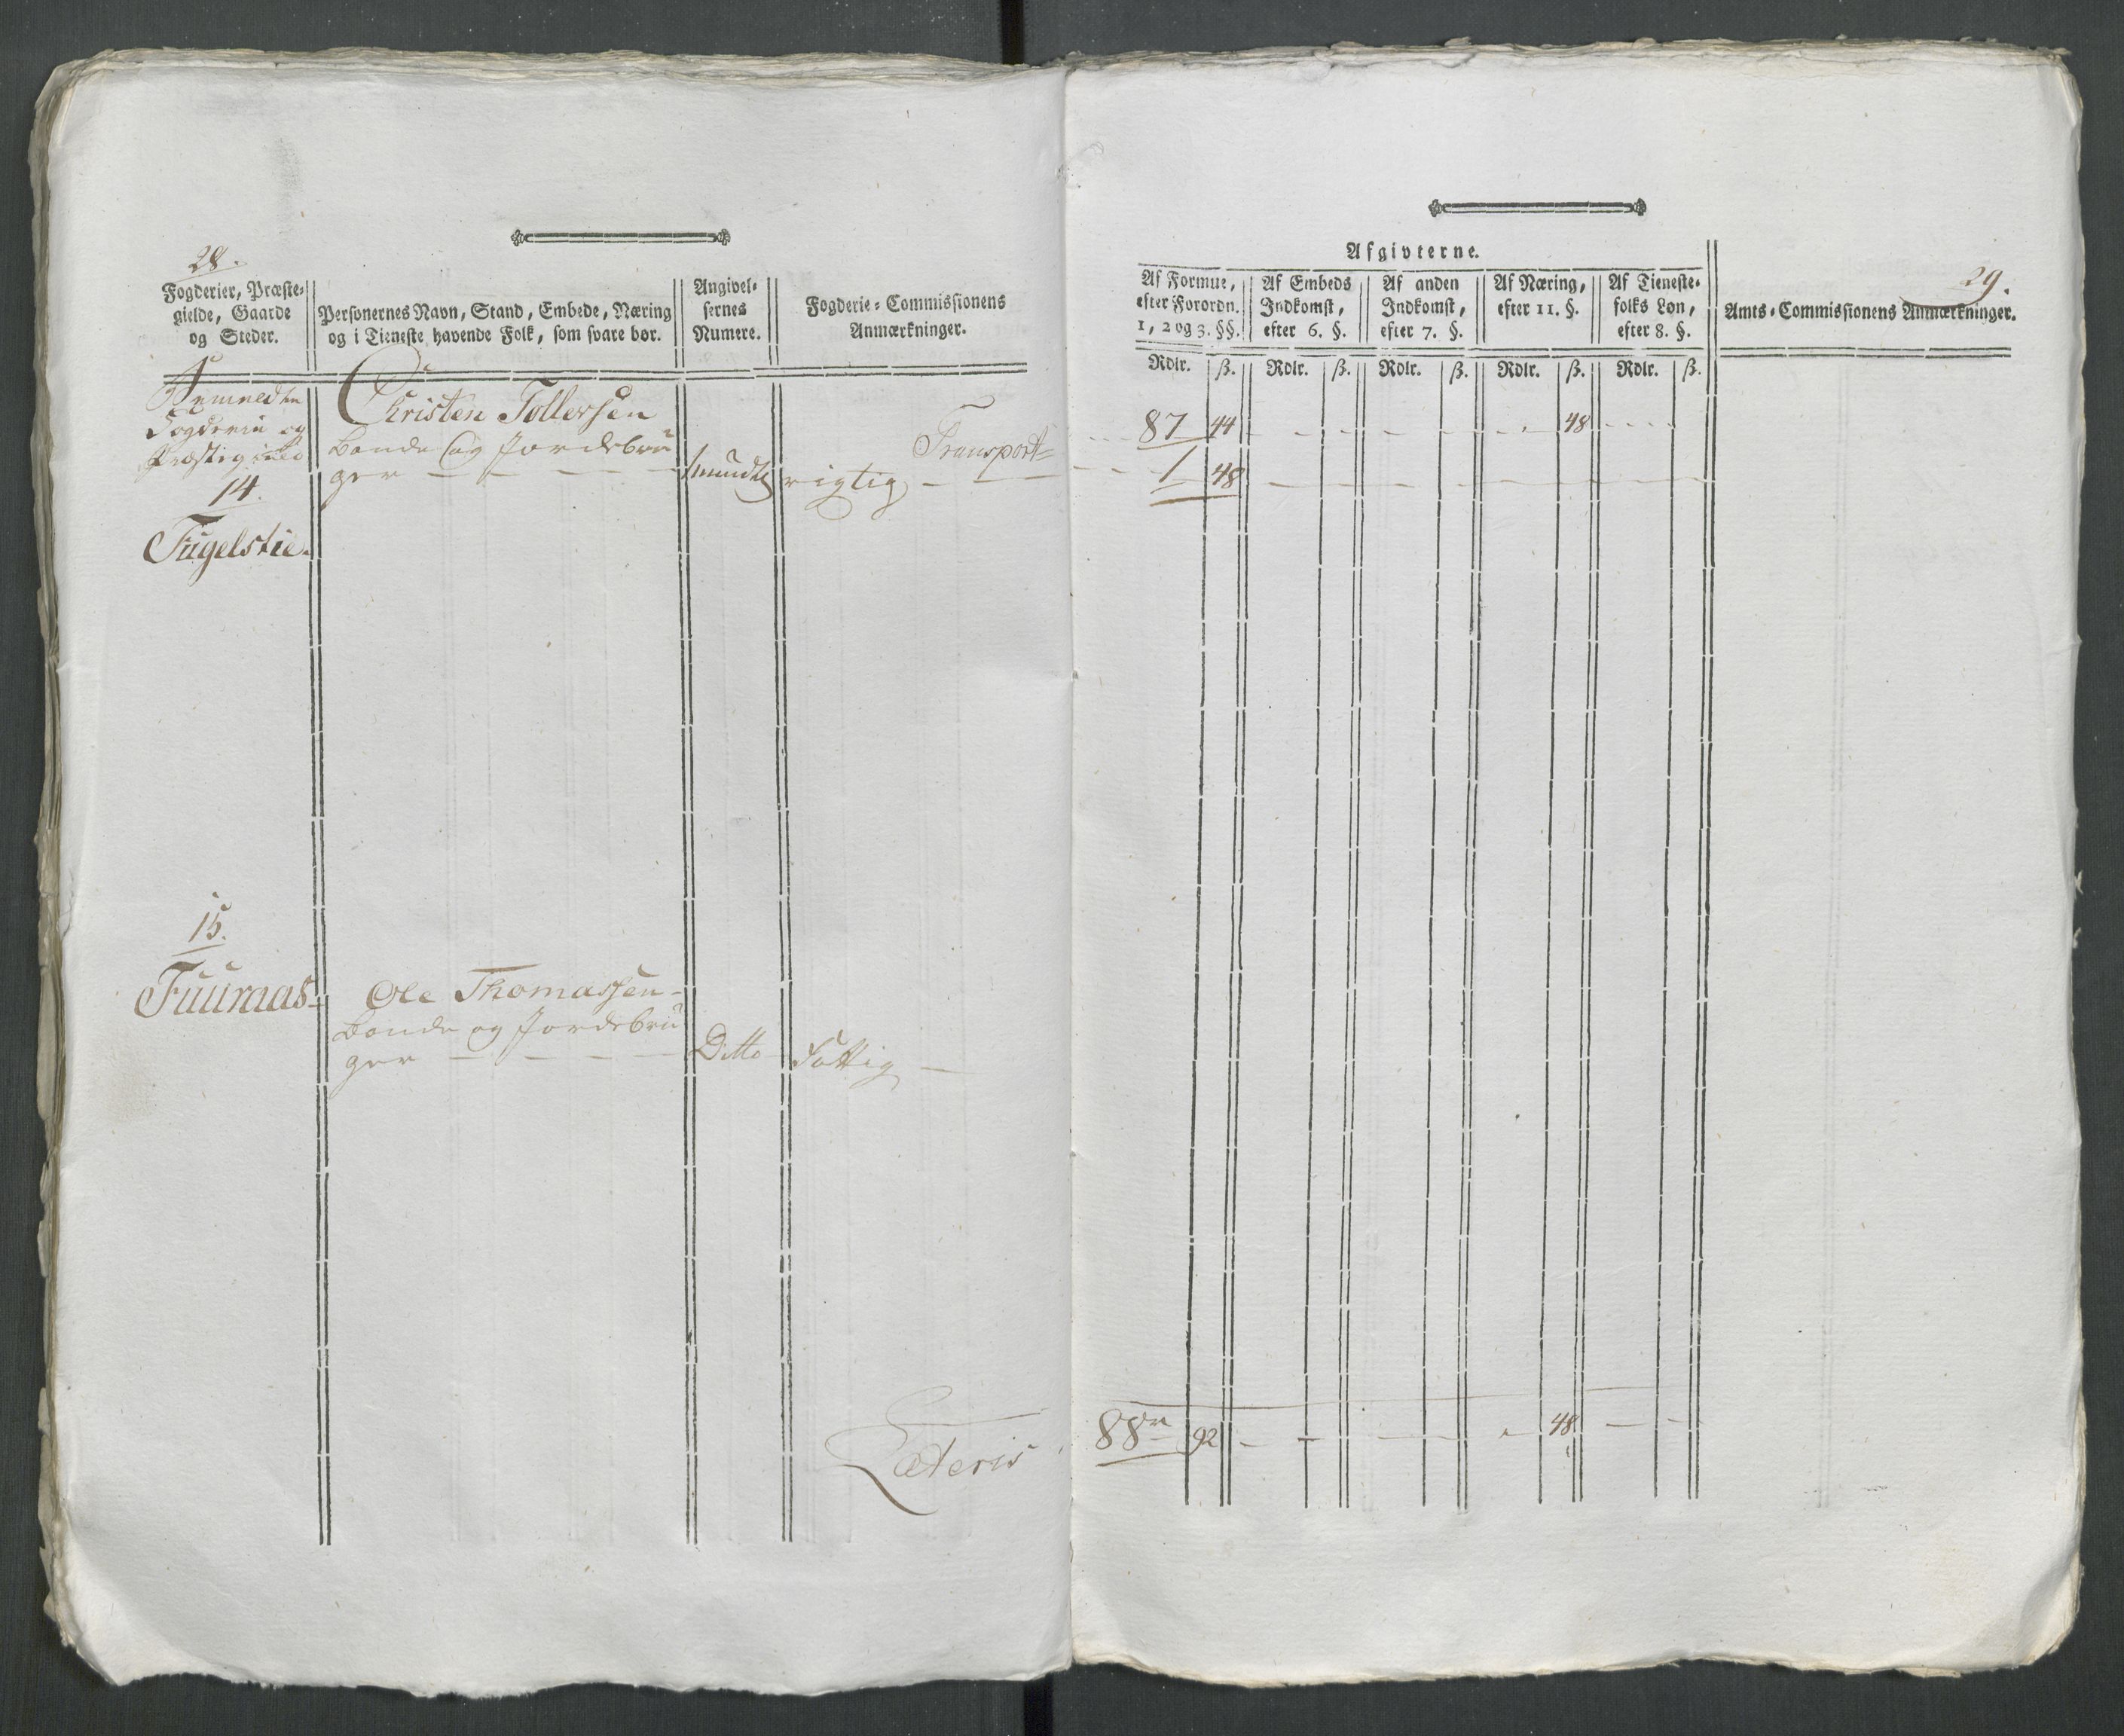 28.
Fogderier, Præste-
gielde, Gaarde
og Steder.
Personernes Navn, Stand, Embede, Næring
og i Tieneste havende Folk, som svare bør.
Angivel-
sernes
Numere.
Fogderie-Commissionens
Anmærkninger.
Fogderie og
Præstegield
14.
Fugelstie.
Christen Tollersen
Bonde og Jordebru-
ger
mundtl
rigtig
Transport
15.
Fuuraas
Ole Thomassen
Bonde og Jordebru
ger
Ditto
Fattig
Lateris
29.
Afgivterne.
Af Formue,
efter Forordn.
1, 2 og 3. §§.
Af Embeds
Indkomst,
efter 6. §.
Af anden
Indkomst,
efter 7. §.
Af Næring,
efter 11. §.
Af Tieneste-
folks Løn,
efter 8. §.
Amts-Commissionens Anmærkninger.
Rdlr. ß. Rdlr. ß. Rdlr. ß. Rdlr. ß. Rdlr. ß.
87 44 48
1 48
88 92 48